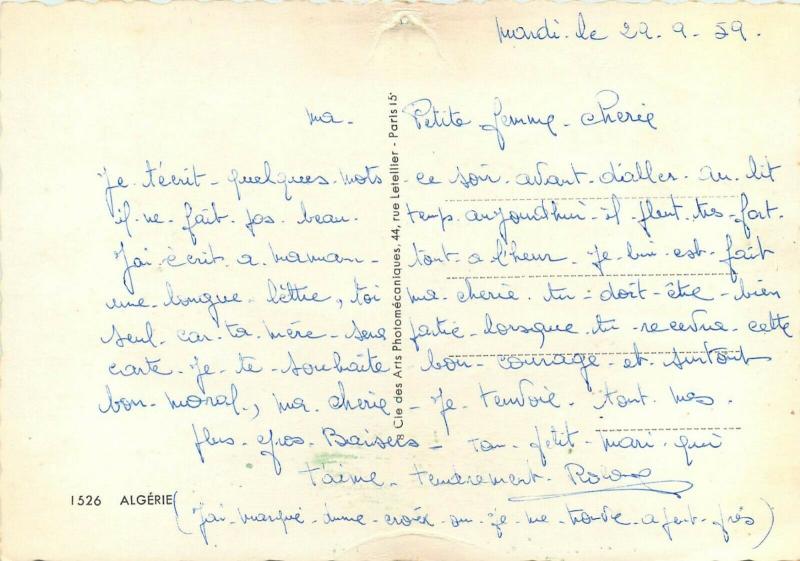 Mardi. le 29. 9. 59.
ma. Petite femme. cherie
Je t'écrit quelques mots ce soir avant d'aller au lit
il ne fait pas beau. temp aujourdhui il pleut tres fort.
J'ai écrit a maman tout a l'heur. je lui est fait
une longue lèttre, toi ma cherie. tu doit être bien
seul car ta mère sera partie lorsque tu recevra cette
carte. Je te souhaite bon courage et surtout
bon moral, ma cherie Je tenvoie tout mes.
plus gros Baisers ton petit mari qui
t'aime tendrement.
(J'ai marqué d'une croix ou je me trouve a peut près)
8 Cie des Arts Photomécaniques, 44, rue Letellier - Paris 15
1526 ALGÉRIE